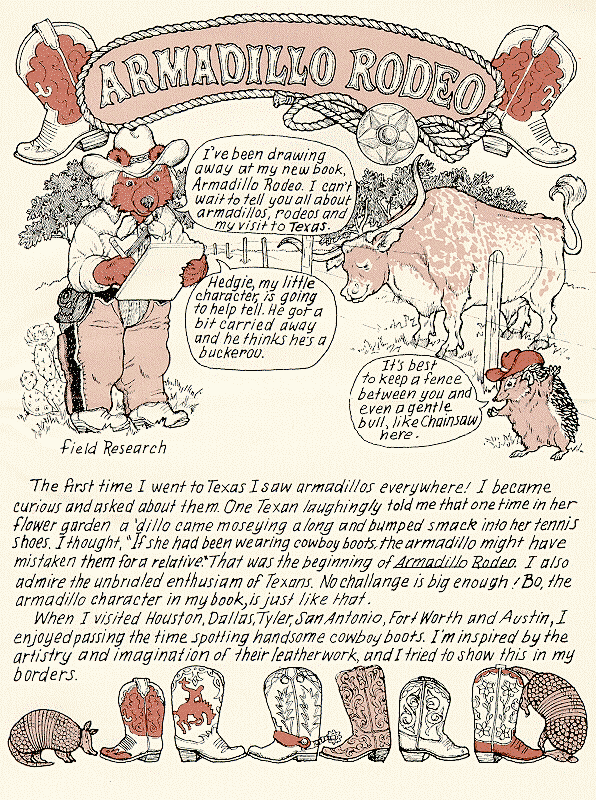 ARMADILLO RODEO
I've been drawing
away at my new book,
Armadillo Rodeo. I can't
wait to tell you all about
armadillos, rodeos and
my visit to Texas.
Hedgie, my little
character, is going
to help tell. He got a
bit carried away
and he thinks he's a
buckeroo.
It's best
to keep a fence
between you and
even a gentle
bull, like Chainsaw
here.
Field Research
The first time I went to Texas I saw armadillos everywhere! I became
curious and asked about them. One Texan laughingly told me that one time in her
flower garden a 'dillo came moseying along and bumped smack into her tennis
shoes. I thought, "If she had been wearing cowboy boots, the armadillo might have
mistaken them for a relative." That was the beginning of Armadillo Rodeo. I also
admire the unbridled enthusiam of Texans. No challange is big enough! Bo, the
armadillo character in my book, is just like that.
When I visited Houston, Dallas, Tyler, San Antonio, Fort Worth and Austin, I
enjoyed passing the time spotting handsome cowboy boots. I'm inspired by the
artistry and imagination of their leatherwork, and I tried to show this in my
borders.